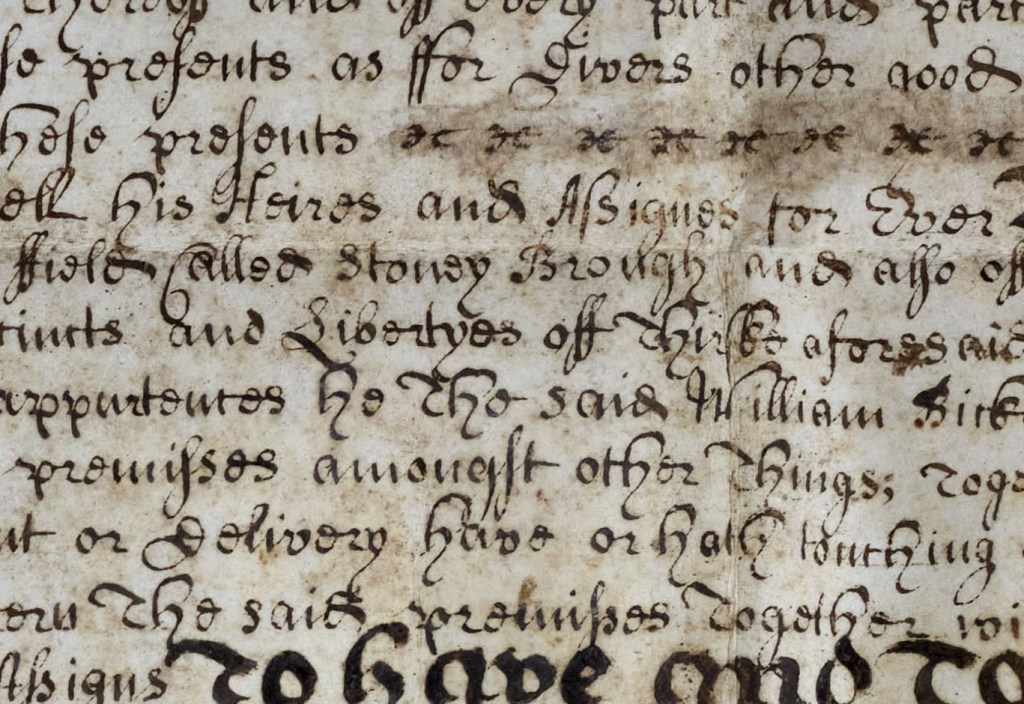 thereoff and off every part and part
se presents as ffor Divers other good
hese presents &c &c &c &c &c &c &c &c
ell his Heires and Assignes for Ever
ffield Called Stoney Brough and also off
tincts and Libertyes off Thirske aforesaid
appurtences he The said William Bick
premisses amongst other Things; Toge
nt or Delivery have or hath touching
ern The said premisses Together wi
Assigns To have and To